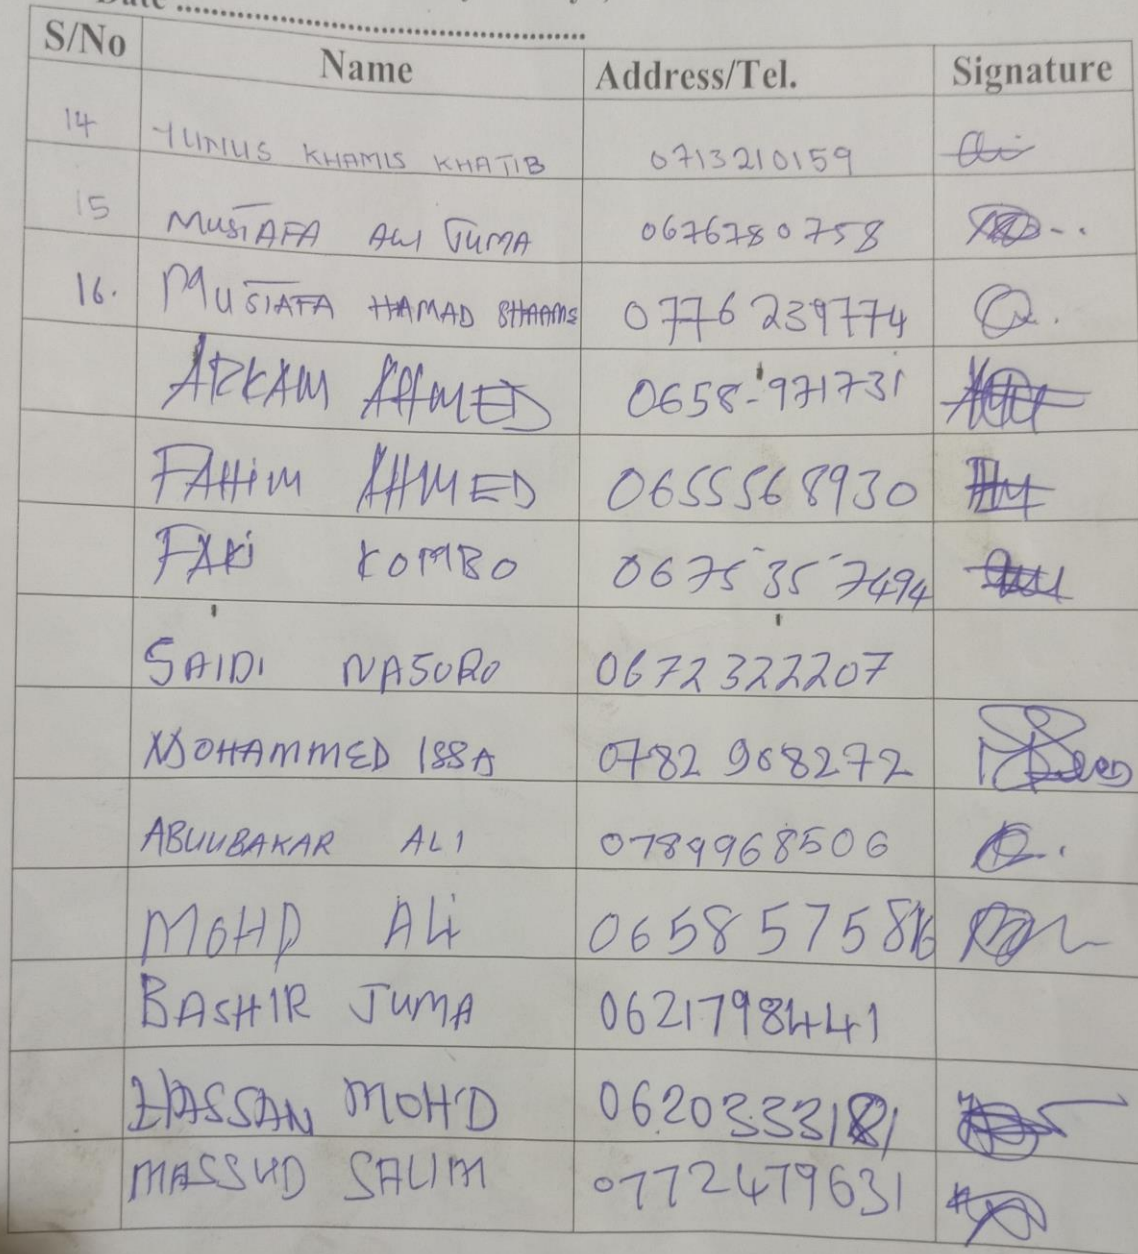 S/No Name Address/Tel. Signature
14 YUNUS KHAMIS KHATIB 0713210159
15 MUSTAFA ALI JUMA 0676780758
16. MUSTAFA HAMAD SHAAMS 0776 239774
ARKAM AHMED 0658-971731
FAHIM AHMED 0655568930
FAKI KOMBO 0675 35 7494
SAIDI NASORO 0672322207
MOHAMMED ISSA 0782 968272
ABUUBAKAR ALI 0789968506
MOHD ALI 0658 5758
BASHIR JUMA 0621798441
HASSAN MOHD
MASSUD SALIM 0772479631